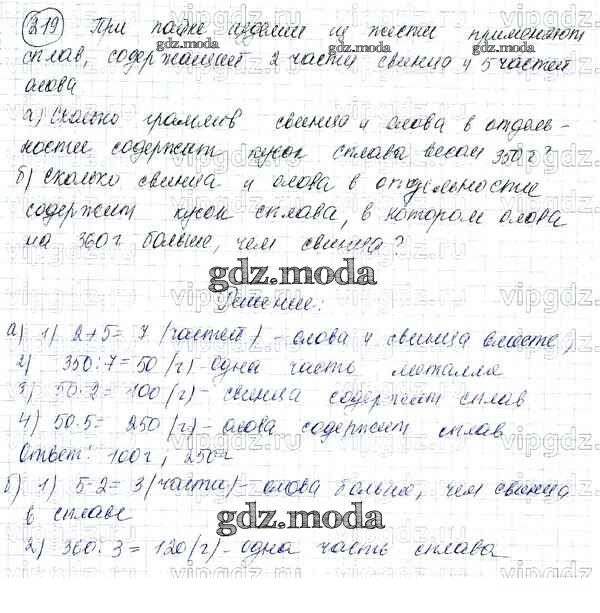 219 При пайке изделий из жести применяют
сплав, содержащий 2 части свинца и 5 частей
олова
а) Сколько граммов свинца и олова в отдель-
ности содержит кусок сплава весом 350г?
б) Сколько свинца и олова в отдельности
содержит кусок сплава, в котором олова
на 360г больше, чем свинца?
gdz.moda
Решение:
а) 1) 2+5= 7 (частей) - олова и свинца вместе;
2) 350:7=50 (г)-одна часть металла
3) 50·2=100(г)- свинца содержит сплав
4) 50·5= 250 (г)- олова содержит сплав
Ответ: 100г, 250г
б) 1) 5-2= 3(части)- олова больше, чем свинца
в сплаве
gdz.moda
2) 360:3=120(г)-одна часть сплава